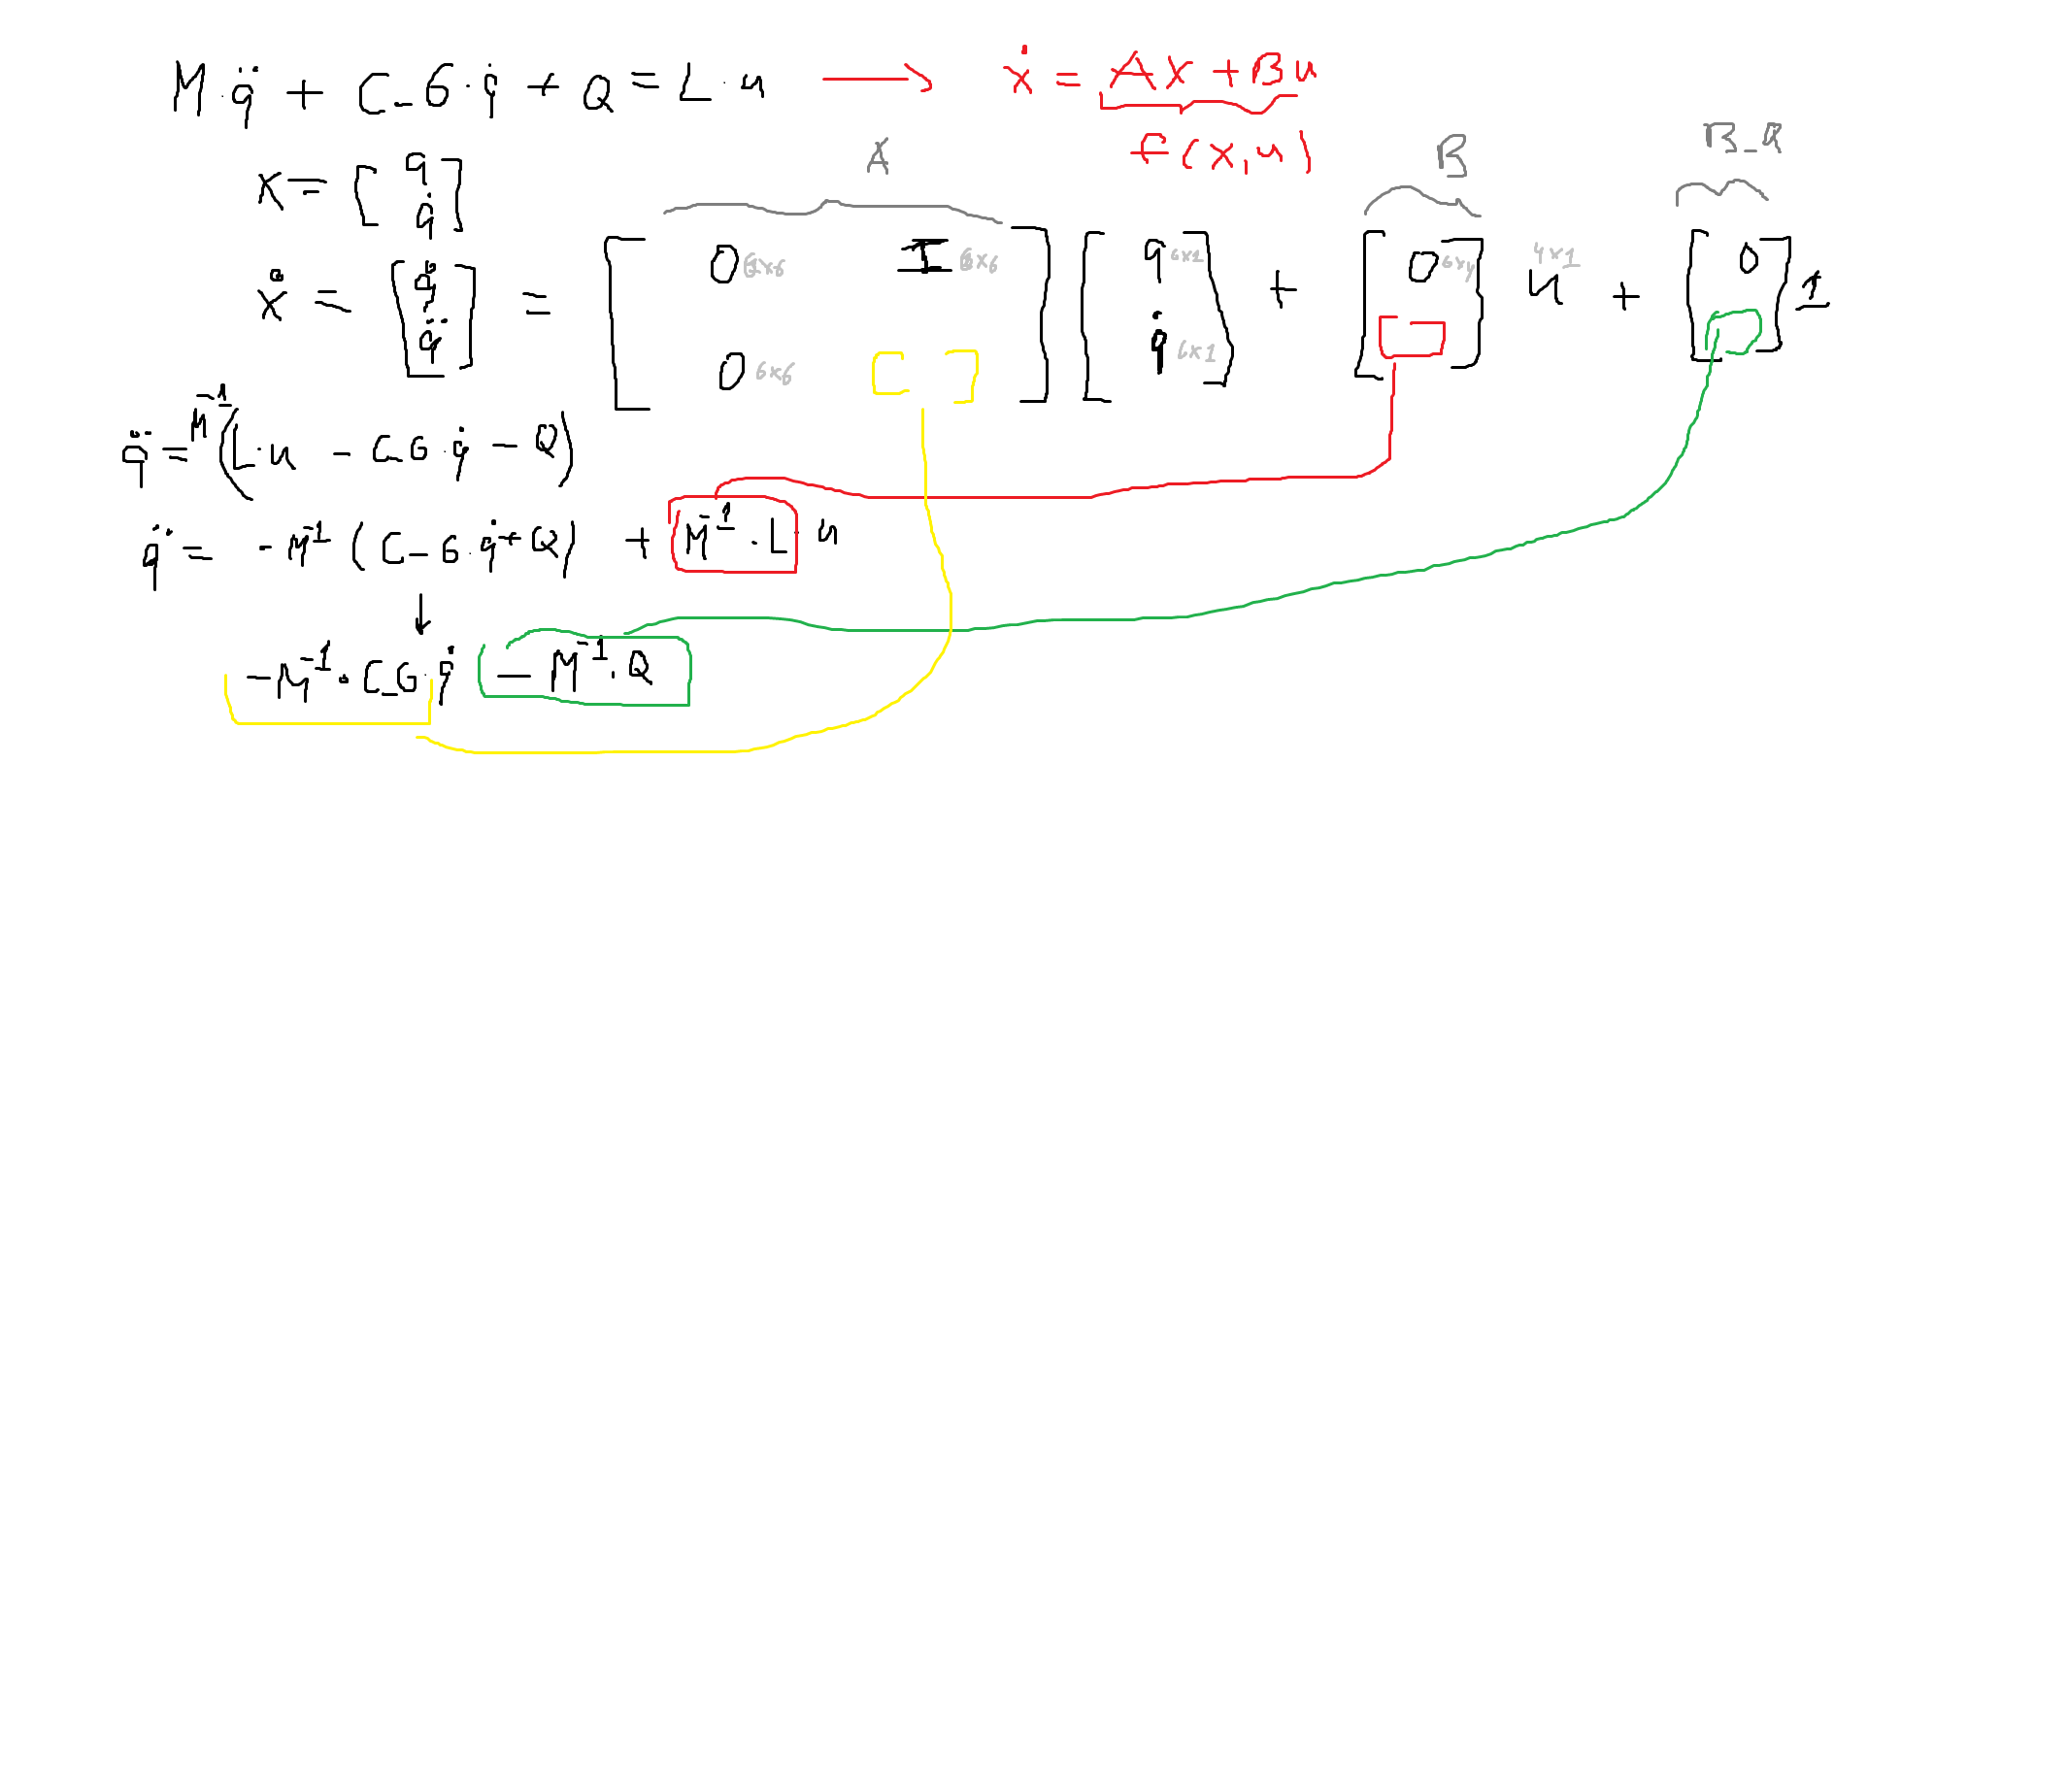 M·q̈ + C_G·q̇ + Q = L·u → ẋ = Ax + Bu
f(x,u)
A B B_Q
x = [q q̇]
ẋ = [q̇ q̈] = [0 6x6 I 6x6 0 6x6 [ ]] [q 6x1 q̇ 6x1] + [0 6x4 [ ]] u 4x1 + [0 [ ]] 1
q̈ = M⁻¹(L·u - CG·q̇ - Q)
q̈ = -M⁻¹(C_G·q̇+Q) + M⁻¹·L u
↓
-M⁻¹·C_G·q̇ - M⁻¹·Q